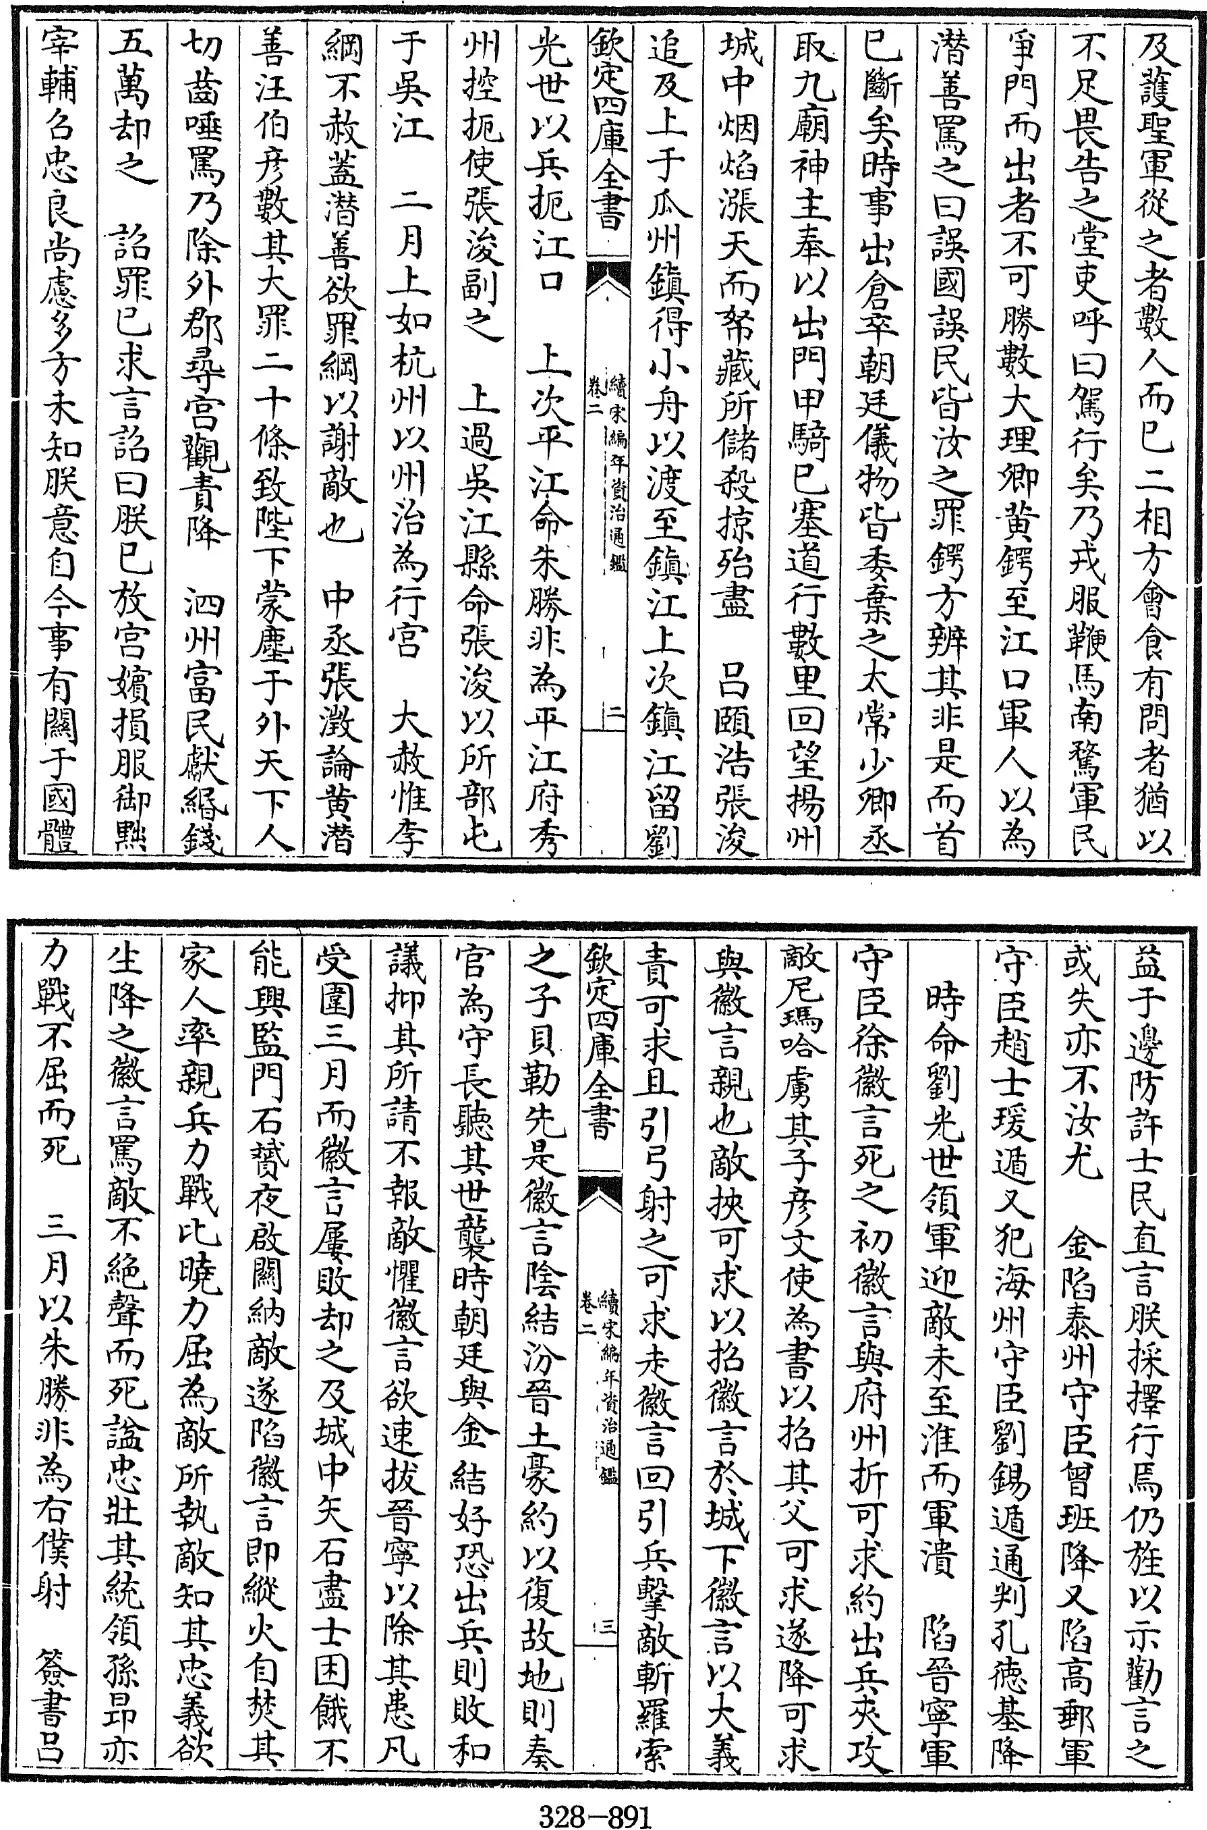 及䕶聖軍從之者數人而已二相方會食有問者猶以
不足畏告之堂吏呼曰駕行矣乃戎服鞭馬南騖軍民
爭門而出者不可勝數大理卿黄鍔至江口軍人以為
潛善罵之曰誤國誤民皆汝之罪鍔方辨其非是而首
已斷矣時事出倉卒朝廷儀物皆委棄之太常少卿丞
取九廟神主奉以出門甲騎已塞道行數里回望揚州
城中烟焰漲天而帑藏所儲殺掠殆盡　吕頤浩張浚
追及上于瓜州鎮得小舟以渡至鎮江上次鎮江留劉
欽定四庫全書
續宋編年資治通鑑
卷二
二
光世以兵扼江口　上次平江命朱勝非為平江府秀
州控扼使張浚副之　上過吳江縣命張浚以所部屯
于吳江　二月上如杭州以州治為行宫　大赦惟李
綱不赦蓋潛善欲罪綱以謝敵也　中丞張澂論黄潛
善汪伯彦數其大罪二十條致陛下蒙塵于外天下人
切齒唾罵乃除外郡尋宫觀責降　泗州富民獻緡錢
五萬却之　詔罪已求言詔曰朕已放宫嬪損服御黜
宰輔召忠良尚慮多方未知朕意自今事有闗于國體
益于邊防許士民直言朕採擇行焉仍旌以示勸言之
或失亦不汝尤　金陷泰州守臣曾班降又陷高郵軍
守臣趙士瑗遁又犯海州守臣劉錫遁通判孔德基降
時命劉光世領軍迎敵未至淮而軍潰　陷晉寧軍
守臣徐徽言死之初徽言與府州折可求約出兵夾攻
敵尼瑪哈虜其子彦文使為書以招其父可求遂降可求
與徽言親也敵挾可求以招徽言於城下徽言以大義
責可求且引弓射之可求走徽言回引兵擊敵斬羅索
欽定四庫全書
續宋編年資治通鑑
卷二
三
之子貝勒先是徽言陰結汾晉土豪約以復故地則奏
官為守長聽其世襲時朝廷與金結好恐出兵則敗和
議抑其所請不報敵懼徽言欲速拔晉寧以除其患凡
受圍三月而徽言屢敗却之及城中矢石盡士困餓不
能興監門石贇夜啟闗納敵遂陷徽言即縱火自焚其
家人率親兵力戰比曉力屈為敵所執敵知其忠義欲
生降之徽言罵敵不絶聲而死諡忠壯其統領孫昂亦
力戰不屈而死　三月以朱勝非為右僕射　簽書吕
328-891